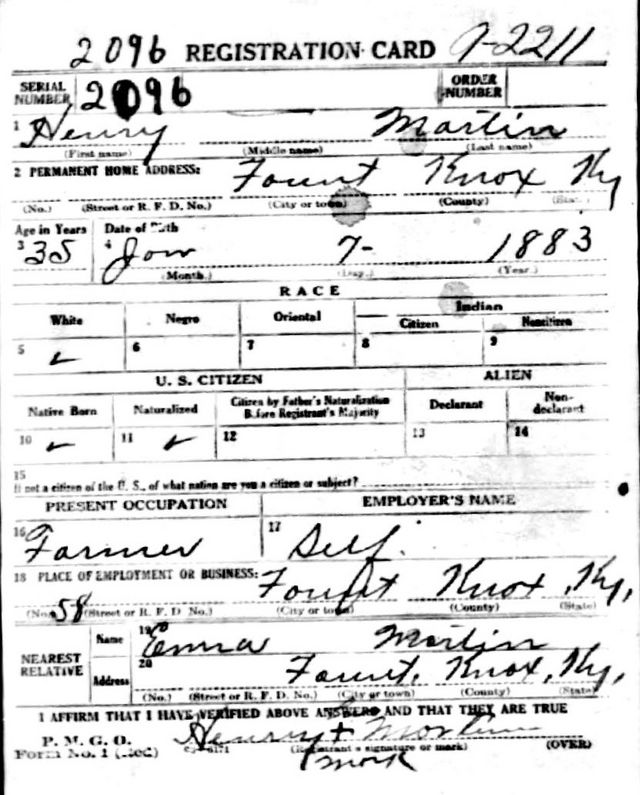 2096 REGISTRATION CARD 9-2211
SERIAL NUMBER 2096 ORDER NUMBER
1 Henry Martin
(First name) (Middle name) (Last name)
2 PERMANENT HOME ADDRESS: Fount Knox Ky
(No.) (Street or R. F. D. No.) (City or town) (County) (State)
Age in Years Date of Birth
3 35 4 Jan 7- 1883
(Month.) (Day.) (Year.)
RACE
White Negro Oriental Indian
Citizen Noncitizen
5 ✓ 6 7 8 9
U. S. CITIZEN ALIEN
Native Born Naturalized Citizen by Father's Naturalization Before Registrant's Majority Declarant Non-declarant
10 ✓ 11 ✓ 12 13 14
15
If not a citizen of the U. S., of what nation are you a citizen or subject?
PRESENT OCCUPATION EMPLOYER'S NAME
16 Farmer 17 Self.
18 PLACE OF EMPLOYMENT OR BUSINESS: Fount Knox, Ky,
(No.) 58 (Street or R. F. D. No.) (City or town) (County) (State)
NEAREST RELATIVE Name 19 Emma Martin
Address 20 Fount, Knox, Ky,
(No.) (Street or R. F. D. No.) (City or town) (County) (State)
I AFFIRM THAT I HAVE VERIFIED ABOVE ANSWERS AND THAT THEY ARE TRUE
P. M. G. O.
Form No. 1 (Red) Henry + Martin
(Registrant's signature or mark) (OVER)
mark